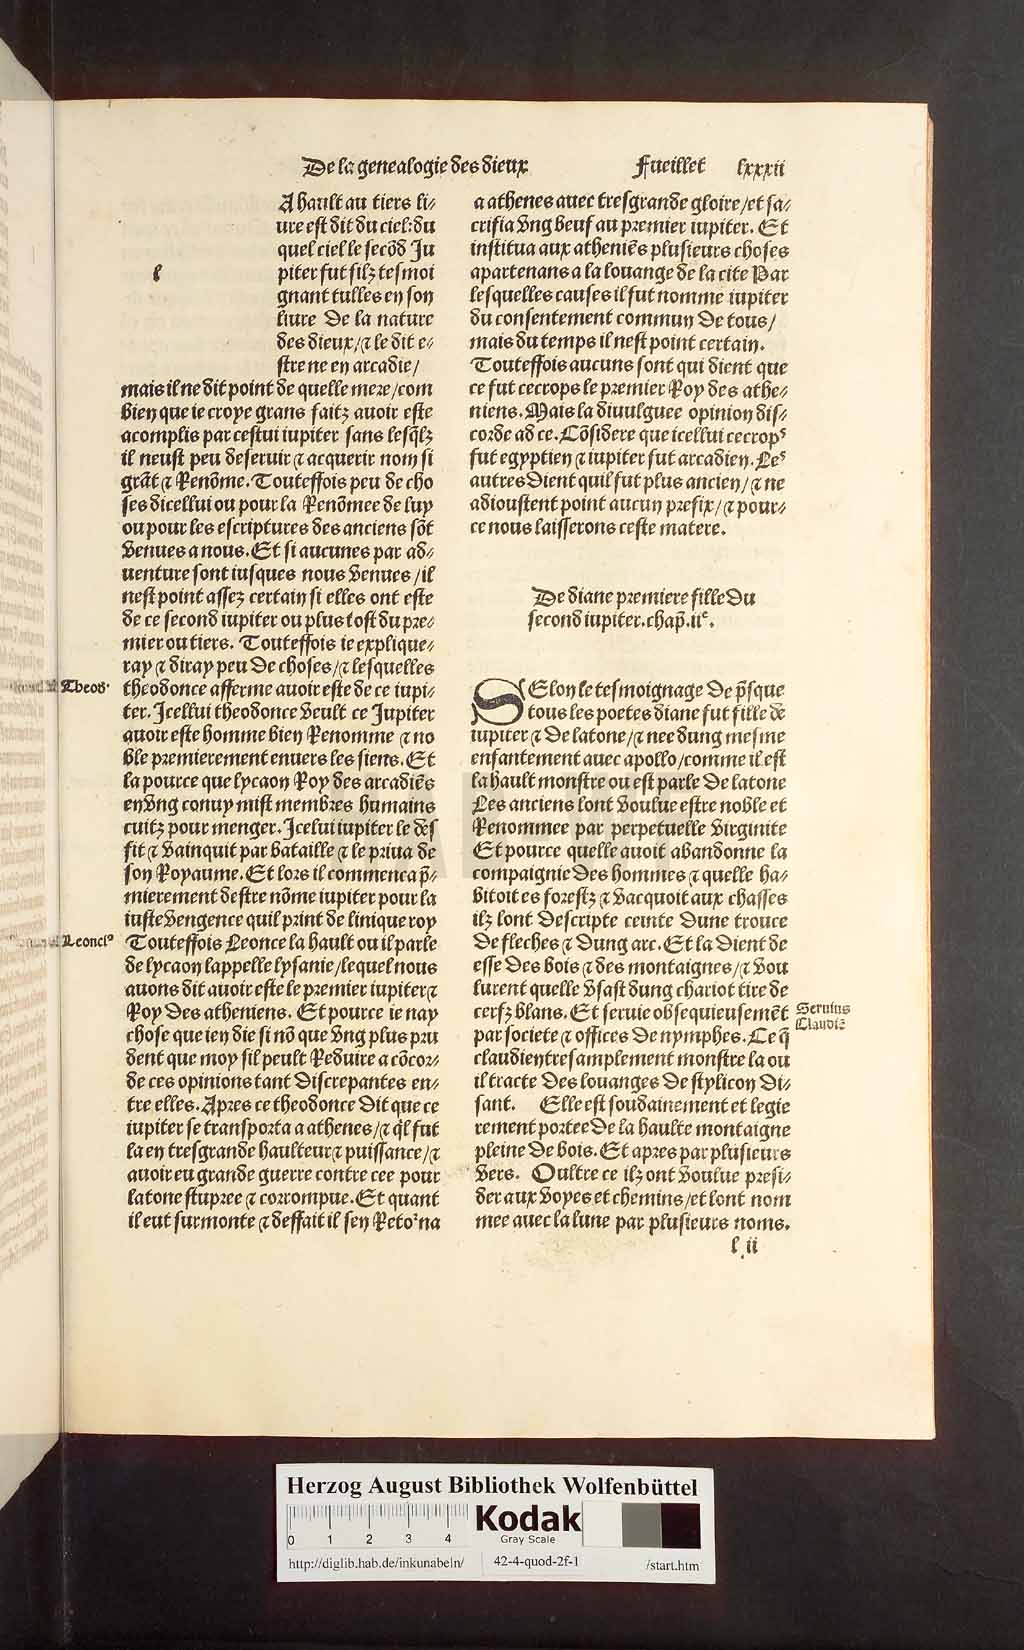 De la genealogie des dieux Fueillet lxxxii
l
A hault au tiers li⸗
ure est dit du ciel: du
quel ciel le secõd Ju
piter fut filz tesmoi
gnant tulles en son
liure De la nature
des dieux/ ⁊ le dit e⸗
stre ne en arcadie/
mais il ne dit point de quelle mere/ com
bien que ie croye grans faitz auoir este
acomplis par cestui iupiter sans lesq̃lz
il neust peu deseruir ⁊ acquerir nom si
grãt ⁊ Renõme. Touteffois peu de cho
ses dicellui ou pour la Renõmee de luy
ou pour les escriptures des anciens sõt
venues a nous. Et si aucunes par ad⸗
uenture sont iusques nous venues/ il
nest point assez certain si elles ont este
de ce second iupiter ou plustost du pre⸗
mier ou tiers. Touteffois ie explique⸗
ray ⁊ diray peu de choses/ ⁊ lesquelles
Theod.
theodonce afferme auoir este de ce iupi⸗
ter. Icellui theodonce veult ce Jupiter
auoir este homme bien Renomme ⁊ no
ble premierement enuers les siens. Et
la pource que lycaon Roy des arcadiẽs
en vng conuy mist membres humains
cuitz pour menger. Icelui iupiter le des
fit ⁊ vainquit par bataille ⁊ le priua de
son Royaume. Et lors il commenca p̃⸗
mierement destre nõme iupiter pour la
iuste vengence quil print de linique roy
Leoncꝰ
Touteffois Leonce la hault ou il parle
de lycaon lappelle lysanie/ lequel nous
auons dit auoir este le premier iupiter ⁊
Roy des atheniens. Et pource ie nay
chose que ien die si nõ que vng plus pru
dent que moy sil peult Reduire a cõcor⸗
de ces opinions tant discrepantes en⸗
tre elles. Apres ce theodonce dit que ce
iupiter se transporta a athenes/ ⁊ q̃l fut
la en tresgrande haulteur ⁊ puissance/ ⁊
auoir eu grande guerre contre cee pour
latone stupree ⁊ corrompue. Et quant
il eut surmonte ⁊ deffait il sen Retoʳna
a athenes auec tresgrande gloire/ et sa⸗
crifia vng beuf au premier iupiter. Et
institua aux atheniẽs plusieurs choses
apartenans a la louange de la cite Par
lesquelles causes il fut nomme iupiter
du consentement commun de tous/
mais du temps il nest point certain.
Touteffois aucuns sont qui dient que
ce fut cecrops le premier Roy des athe⸗
niens. Mais la diuulguee opinion dis⸗
corde ad ce. Cõsidere que icellui cecropˢ
fut egyptien ⁊ iupiter fut arcadien. Leˢ
autres dient quil fut plus ancien/ ⁊ ne
adioustent point aucun prefix/ ⁊ pour⸗
ce nous laisserons ceste matere.
De diane premiere fille du
second iupiter. chap̃. iiᵉ.
SElon le tesmoignage de p̃sque
tous les poetes diane fut fille de
iupiter ⁊ de latone/ ⁊ nee dung mesme
enfantement auec apollo/ comme il est
la hault monstre ou est parle de latone
Les anciens lont voulue estre noble et
Renommee par perpetuelle virginite
Et pource quelle auoit abandonne la
compaignie des hommes ⁊ quelle ha⸗
bitoit es forestz ⁊ vacquoit aux chasses
ilz lont descripte ceinte dune trouce
de fleches ⁊ dung arc. Et la dient de
esse des bois ⁊ des montaignes/ ⁊ vou
lurent quelle vsast dung chariot tire de
cerfz blans. Et seruie obsequieusemẽt
Seruius
Claudiẽ
par societe ⁊ offices de nymphes. Ce q̃
claudien tresamplement monstre la ou
il tracte des louanges de stylicon di⸗
sant. Elle est soudainement et legie
rement portee de la haulte montaigne
pleine de bois. Et apres par plusieurs
vers. Oultre ce ilz ont voulue presi⸗
der aux voyes et chemins/ et lont nom
mee auec la lune par plusieurs noms.
l ii
Herzog August Bibliothek Wolfenbüttel
0 1 2 3 4
Kodak
Gray Scale
http://diglib.hab.de/inkunabeln/ 42-4-quod-2f-1 /start.htm